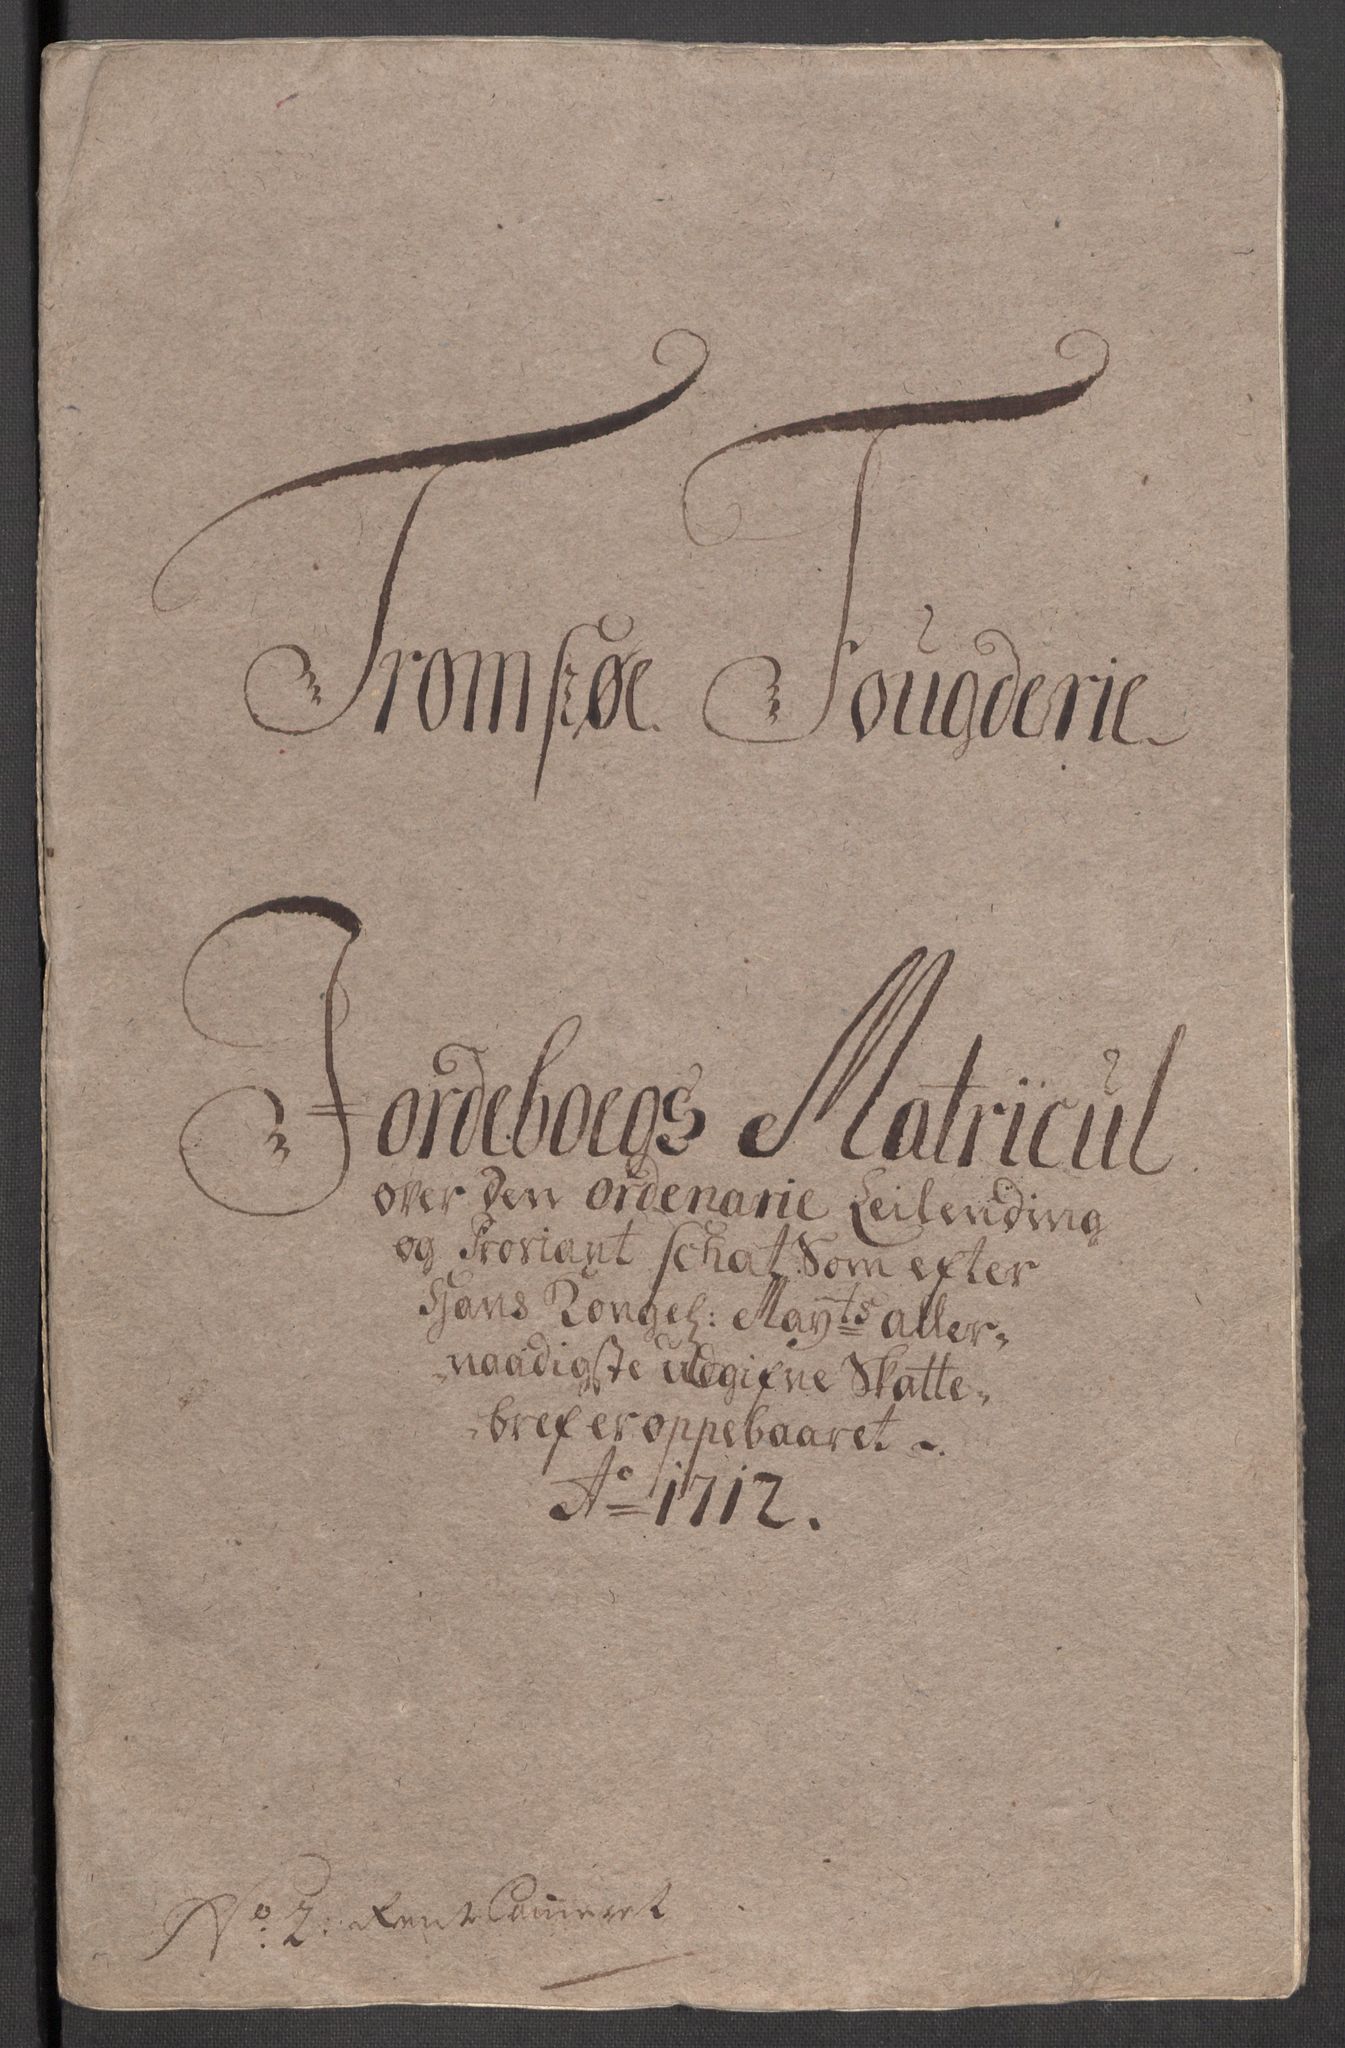 Tromsøe Fougderie
Jordeboegs Matricul
over den ordenarie Leilending
og Proviant schat Som efter
Hans Kongel: Mayts aller-
naadigste udgifne Skatte-
bref er oppebaaret
Ao 1712.
No. 2. RenteCammeret